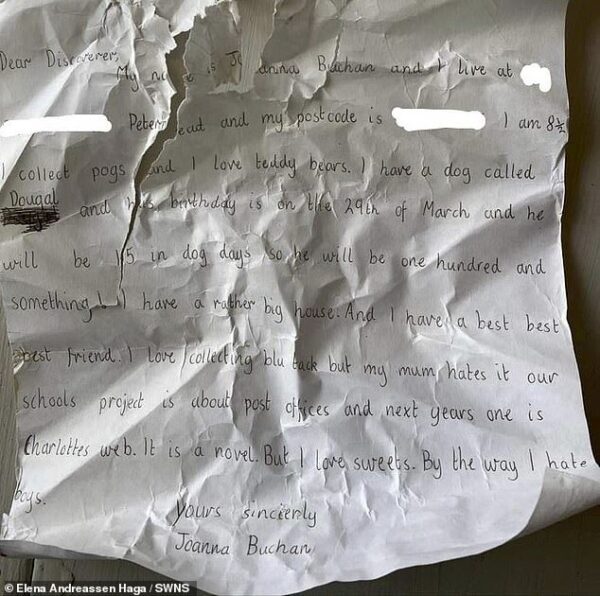 Dear Discoverer,
My name is Joanna Buchan and I live at
Peterhead and my postcode is I am 8½
I collect pogs and I love teddy bears. I have a dog called
Dougal and his birthday is on the 29th of March and he
will be 15 in dog days so he will be one hundred and
something! I have a rather big house. And I have a best best
best friend. I love collecting blu tack but my mum hates it our
schools project is about post offices and next years one is
Charlottes web. It is a novel. But I love sweets. By the way I hate
boys.
yours sincierly
Joanna Buchan
© Elena Andreassen Haga / SWNS